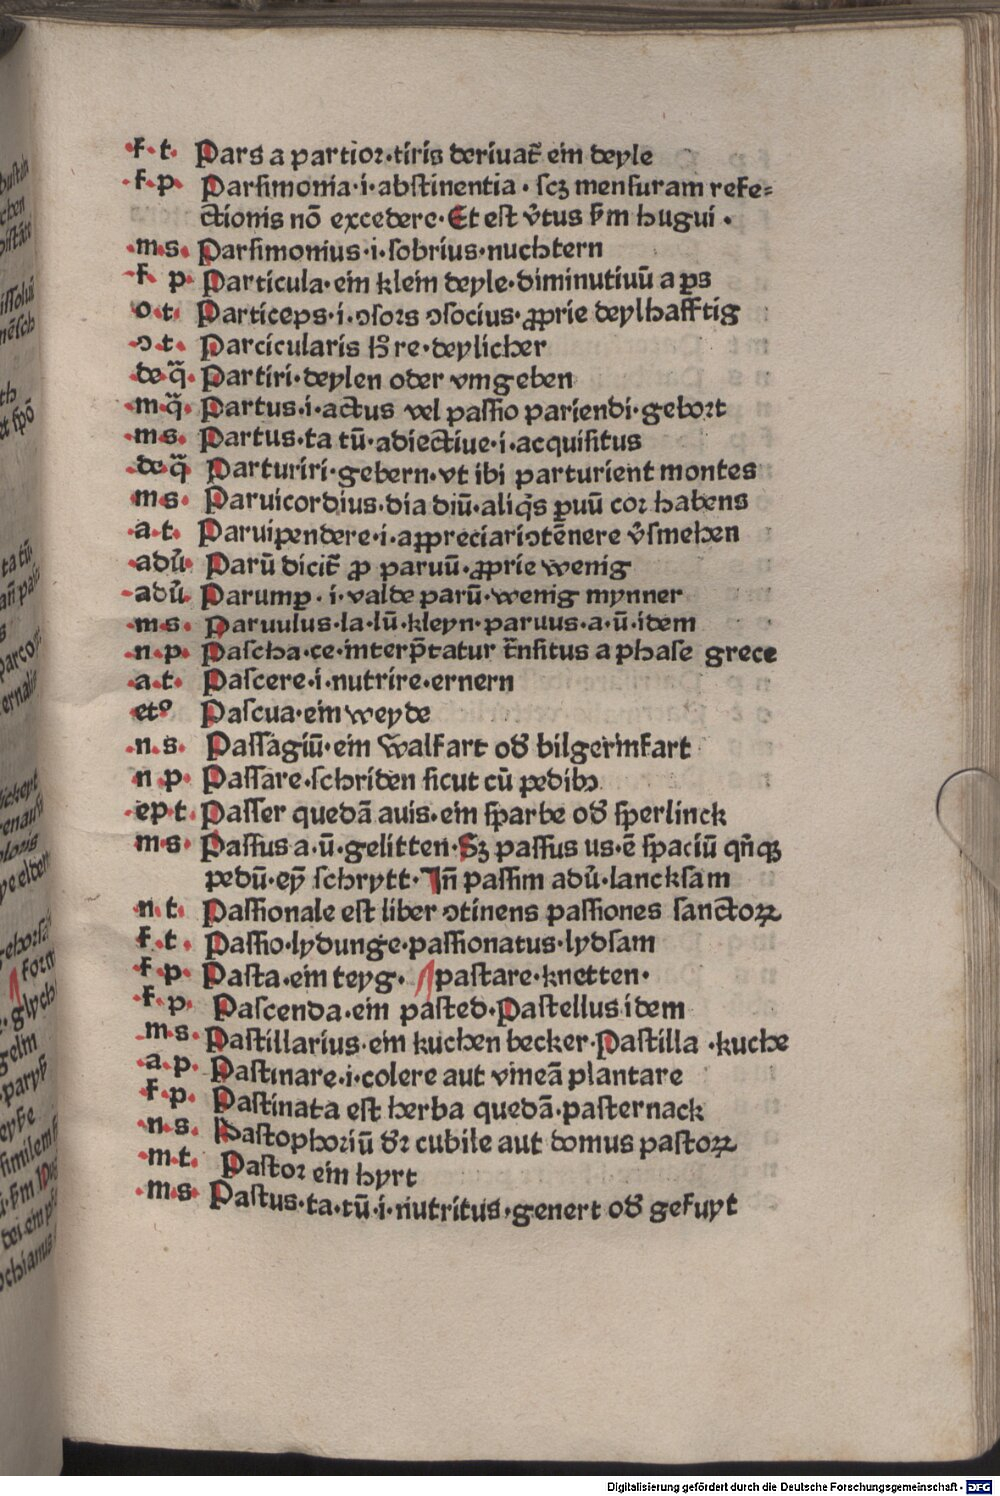 f·t· Pars a partior·tiris deriuat̃ ein deyle
f·p· Parsimonia·i·abstinentia·scꝫ mensuram refe=
ctionis nō excedere·Et est v̓tus ẜm hugui·
m·s· Parsimonius·i·sobrius·nuchtern
f·p· Particula·ein klein deyle·diminutiuū a ꝑs
o·t· Particeps·i·ꝯsors ꝯsocius·ꝓprie deylhafftig
ꝯ·t· Parcicularis re·deylicher
de·q̄· Partiri·deylen oder vmgeben
m·q̄· Partus·i·actus vel passio pariendi·gebort
m·s· Partus·ta tū·adiectiue·i·acquisitus
de·q̄ Parturiri·gebern·vt ibi parturient montes
m·s· Paruicordius·dia diū·aliq̇s ꝑuū cor habens
·a·t· Paruipendere·i·appreciari ꝯtēnere v̓smehen
·adv̓· Parū dicit̃ ꝓ paruū·ꝓprie wenig
·adv̓· Parumꝑ·i·valde parū·wenig mynner
·m·s· Paruulus·la·lū·kleyn·paruus·a·ū·idem
·n·p· Pascha·ce·interp̄tatur t̄nsitus a phase grece
·a·t· Pascere·i·nutrire·ernern
etº Pascua·ein weyde
·n·s· Passagiū·ein walfart od̓ bilgerinfart
·n p· Passare·schriden sicut cū pedibꝫ
·ep t· Passer quedā auis·ein sparbe od̓ sperlinck
·m·s· Passus·a·ū·gelitten·Sꝫ passus us·ē spaciū qn̄qꝫ
pedū·ey̅ schrytt·In̄ passim adv̓·lancksam
·n·t· Passionale est liber ꝯtinens passiones sanctoꝝ
·f·t· Passio·lydunge·passionatus·lydsam
·f·p· Pasta·ein teyg·¶pastare·knetten·
·f·p· Pascenda·ein pasted·Pastellus idem
m·s· Pastillarius·ein kuchen becker·Pastilla·kuche
·a·p· Pastinare·i·colere aut vineā plantare
·f·p· Pastinata est herba quedā·pasternack
·n·s· Pastophoriū dr̄ cubile aut domus pastoꝝ
·m·t· Pastor ein hyrt
·m·s· Pastus·ta·tū·i·nutritus·genert od̓ gefuyt
Digitalisierung gefördert durch die Deutsche Forschungsgemeinschaft - DFG